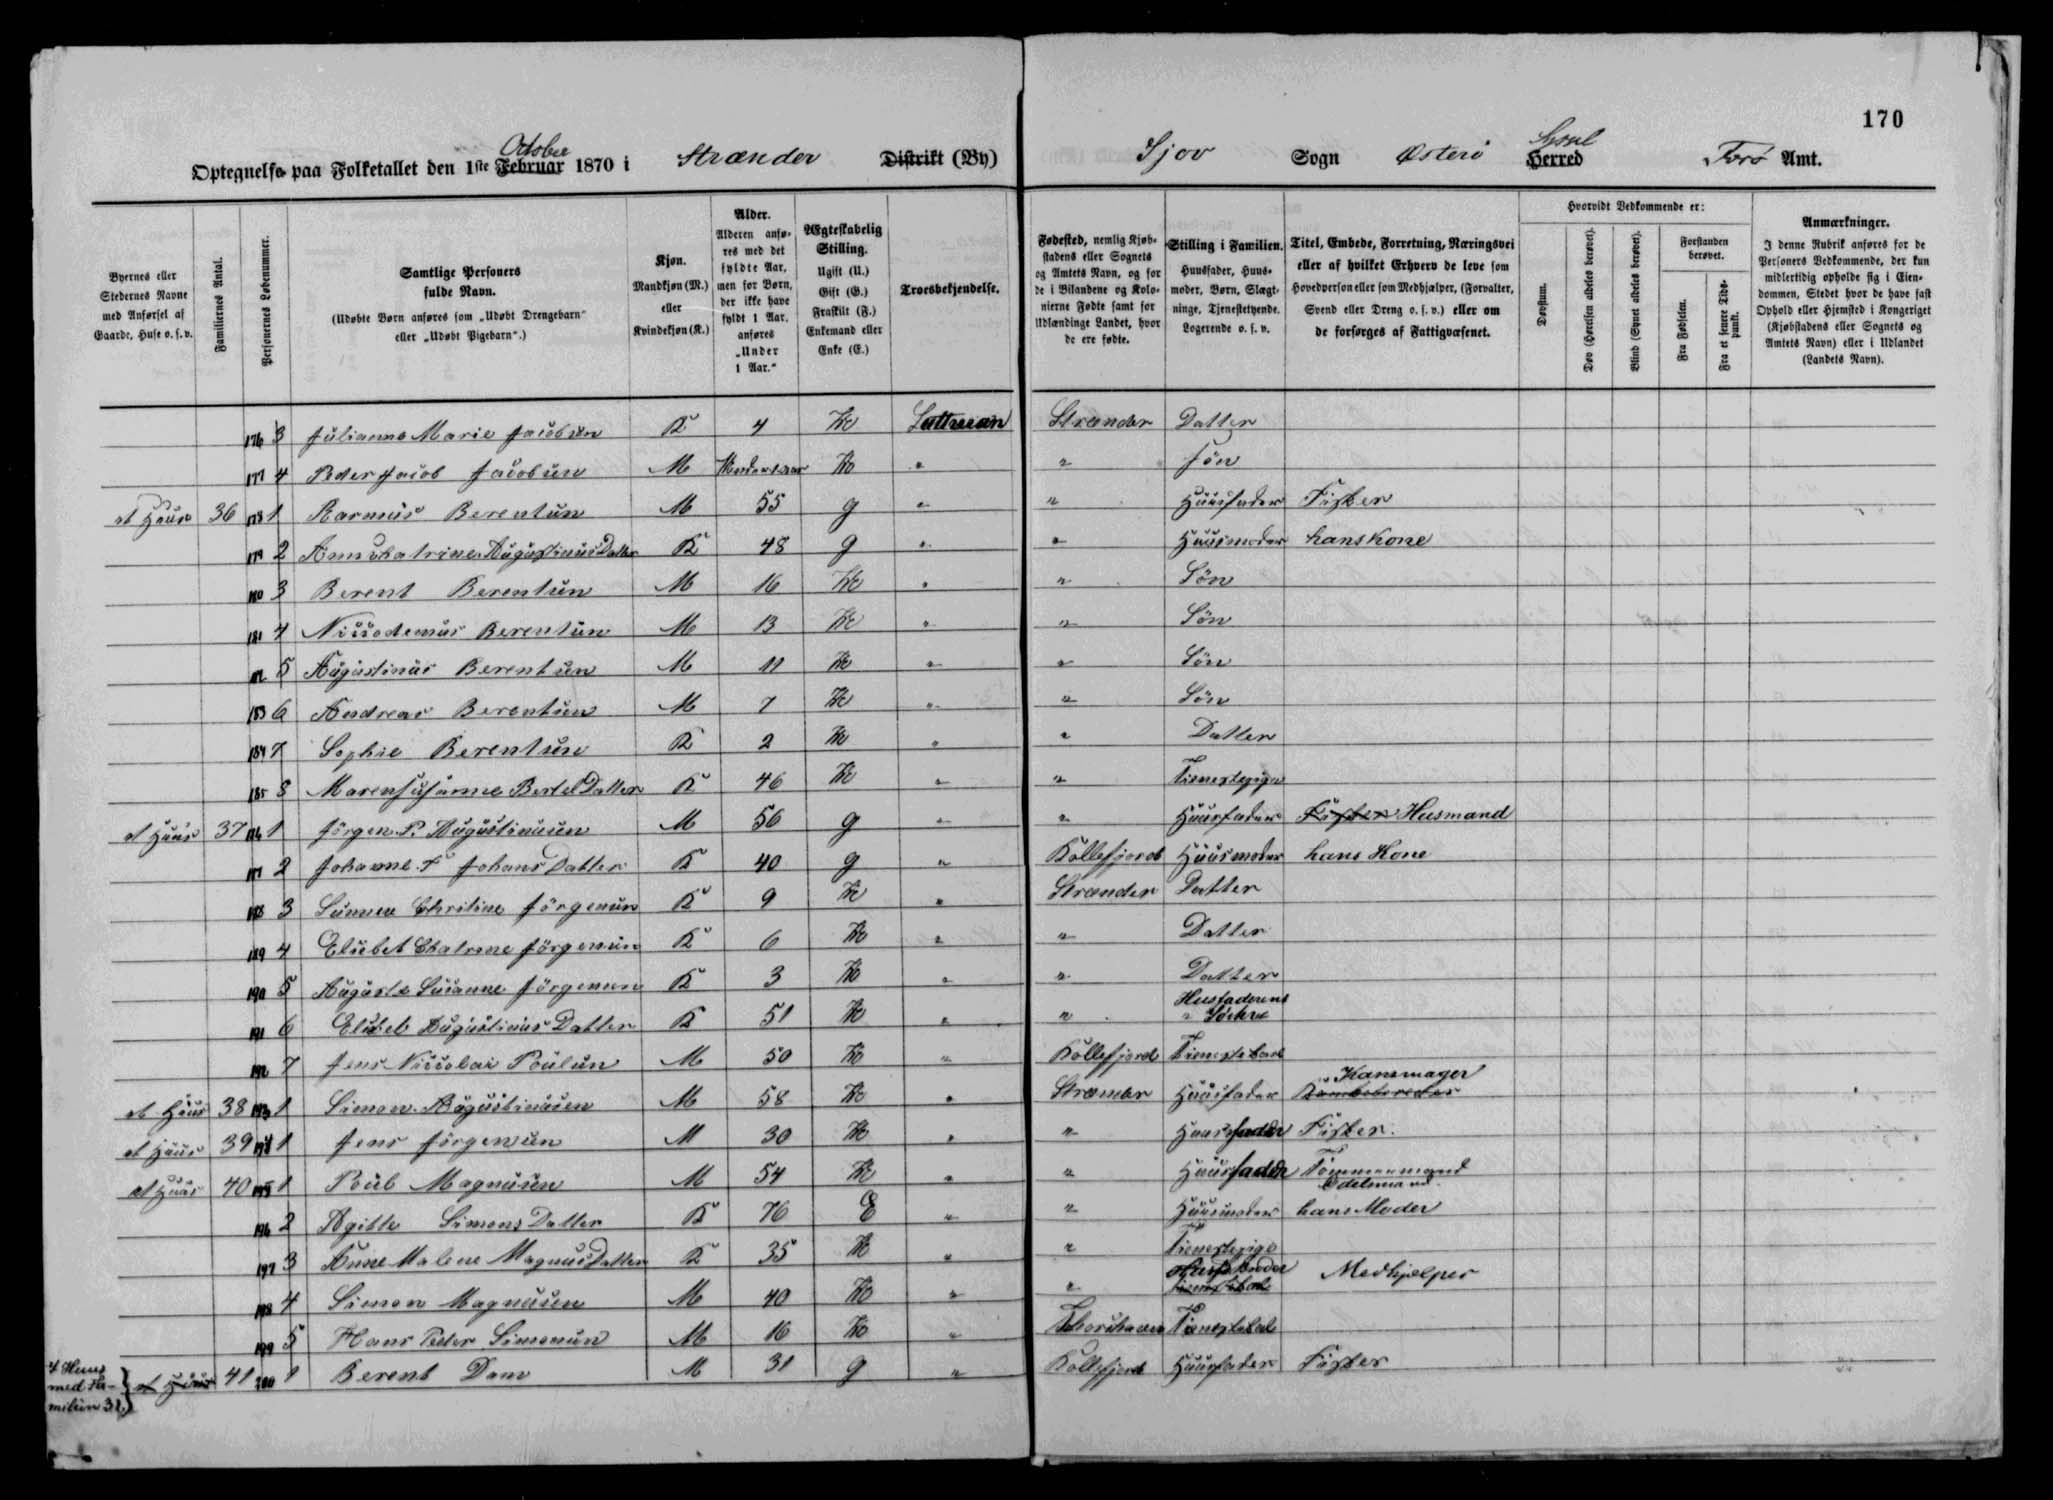 170
Optegnelse paa Folketallet den 1ste Februar Octobr 1870 i Strænder Distrikt (By) Sjov Sogn Østerö Herred Syssel Færö Amt.
Byernes eller Stedernes Navne med Anførsel af Gaarde, Huse o. s. v.
Familiernes Antal.
Personernes Løbenummer.
Samtlige Personers fulde Navn.
(Udøbte Børn anføres som „Udøbt Drengebarn“ eller „Udøbt Pigebarn“.)
Kjøn.
Mandkjøn (M.) eller Kvindekjøn (K.)
Alder.
Alderen anføres med det fyldte Aar, men for Børn, der ikke have fyldt 1 Aar, anføres „Under 1 Aar.“
Ægteskabelig Stilling.
Ugift (U.) Gift (G.) Fraskilt (F.) Enkemand eller Enke (E.)
Troesbekjendelse.
Fødested, nemlig Kjøbstadens eller Sognets og Amtets Navn, og for de i Bilandene og Kolonierne Fødte samt for Udlændinge Landet, hvor de ere fødte.
Stilling i Familien.
Huusfader, Huusmoder, Børn, Slægtninge, Tjenestetyende, Logerende o. s. v.
Titel, Embede, Forretning, Næringsvei eller af hvilket Erhverv de leve som Hovedperson eller som Medhjælper, (Forvalter, Svend eller Dreng o. s. v.) eller om de forsørges af Fattigvæsenet.
Hvorvidt Vedkommende er:
Døvstum.
Døv (Hørelsen aldeles berøvet).
Blind (Synet aldeles berøvet).
Forstanden berøvet.
Fra Fødselen.
Fra et senere Tidspunkt.
Anmærkninger.
I denne Rubrik anføres for de Personers Vedkommende, der kun midlertidig opholde sig i Eiendommen, Stedet hvor de have fast Ophold eller Hjemsted i Kongeriget (Kjøbstadens eller Sognets og Amtets Navn) eller i Udlandet (Landets Navn).
176 3 Julianna Marie Jacobsen K 4 U Luttresean Strænder Datter
177 4 Peder Jacob Jacobsen M Under 1 Aar U " " Sön
et Huus 36 178 1 Rasmus Berentsen M 55 g " " Huusfader Fisker
179 2 Anna Chatrine Augustinus Datter K 48 g " " Huusmoder hans kone
180 3 Berent Berentsen M 16 U " " Sön
181 4 Niccodemus Berentsen M 13 U " " Sön
182 5 Augustinus Berentsen M 11 U " " Sön
183 6 Andreas Berentsen M 7 U " " Sön
184 7 Sophie Berentsen K 2 U " " Datter
185 8 Maren Susanne Bertel Datter K 46 U " " Tienestepige
et Huus 37 186 1 Jörgen P. Augustinusen M 56 g " " Huusfader Fisker Husmand
187 2 Johanne F Johans Datter K 40 g " Kollefjord Huusmoder hans Kone
188 3 Sunneva Christine Jörgensen K 9 U " Strænder Datter
189 4 Elsebet Chatrine Jörgensen K 6 U " " Datter
190 5 Auguste Susanne Jörgensen K 3 U " " Datter
191 6 Elsebet Augustinus Datter K 51 U " " Husfaderens Söster
192 7 Jens Niccolai Poulsen M 50 U " Kollefjord Tienestekarl
et Huus 38 193 1 Simon Augustinusen M 58 U " Strænder Huusfader Kammager
et Huus 39 194 1 Jens Jörgensen M 30 U " " Huusfader Fisker.
et Huus 40 195 1 Poul Magnusen M 54 U " " Huusfader Tömmermand Odelsmand.
196 2 Agitte Simons Datter K 76 E " " Huusmoder hans Moder
197 3 Anne Malene Magnus Datter K 35 U " " Tienestepige
198 4 Simon Magnusen M 40 U " " Tienestekarl Medhjælper
199 5 Hans Peter Simonsen M 16 U " Thorshavn Tienestekarl
4 Huus med Familien 38.} et Huus 41 200 1 Berent Dam M 31 g " Kollefjord Huusfader Fisker